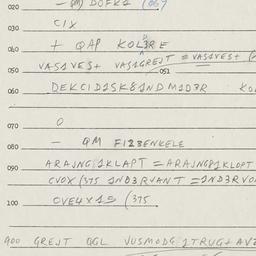 020 — QM) DOFK2 (069
030 CIX
040 + QAP KOL3RE
050 VASAVES+ VASAGREJT = VASAVES+
051
060 DEKCID1SK81NDM1D3R KO
070 0
080 — QM FI23ENKELE
090 ARAJNG1KLAPT = ARAJNG81KLOPT
CVOX (375 1ND3RVANT = 1ND3RVO
100 OVE4X1S (375
900 GREJT QGL VUSMODG 1TRUG+ AVZ